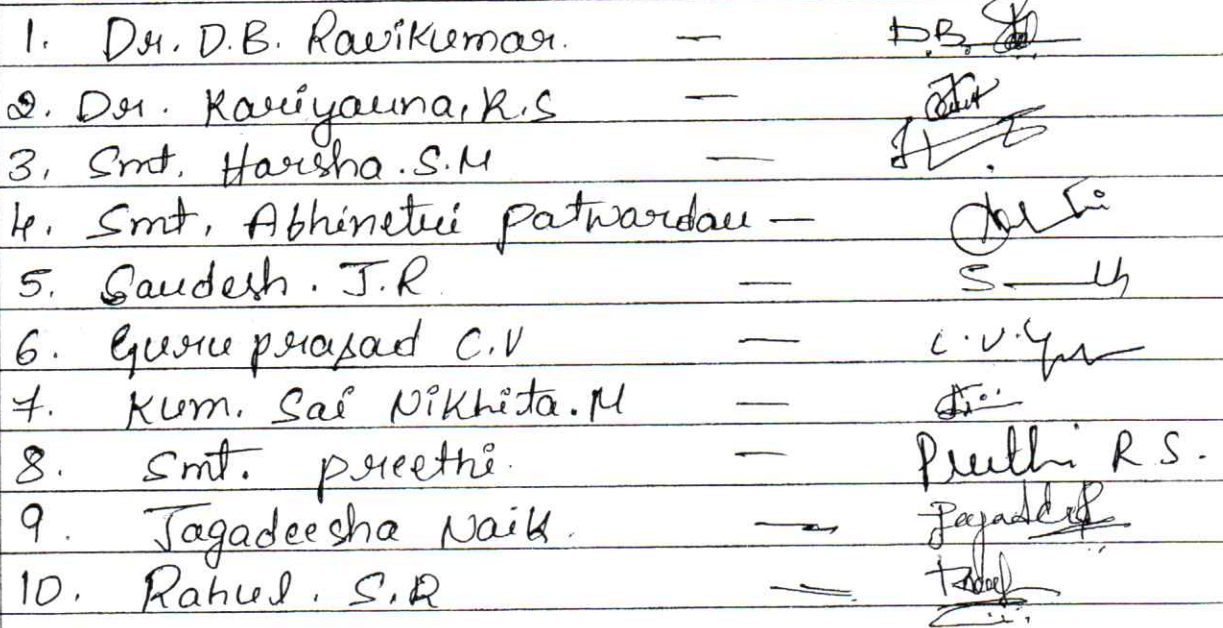 1. Dr. D.B. Ravikumar. — D.B.
2. Dr. Kariyanna, R.S —
3. Smt. Harsha.S.M —
4. Smt. Abhinetri Patwardan —
5. Sandesh. J.R —
6. Guruprasad C.V — C.V.
7. Kum. Sai Nikhita.M —
8. Smt. preethi. — Preethi R S.
9. Jagadeesha Naik. —
10. Rahul. S.R —